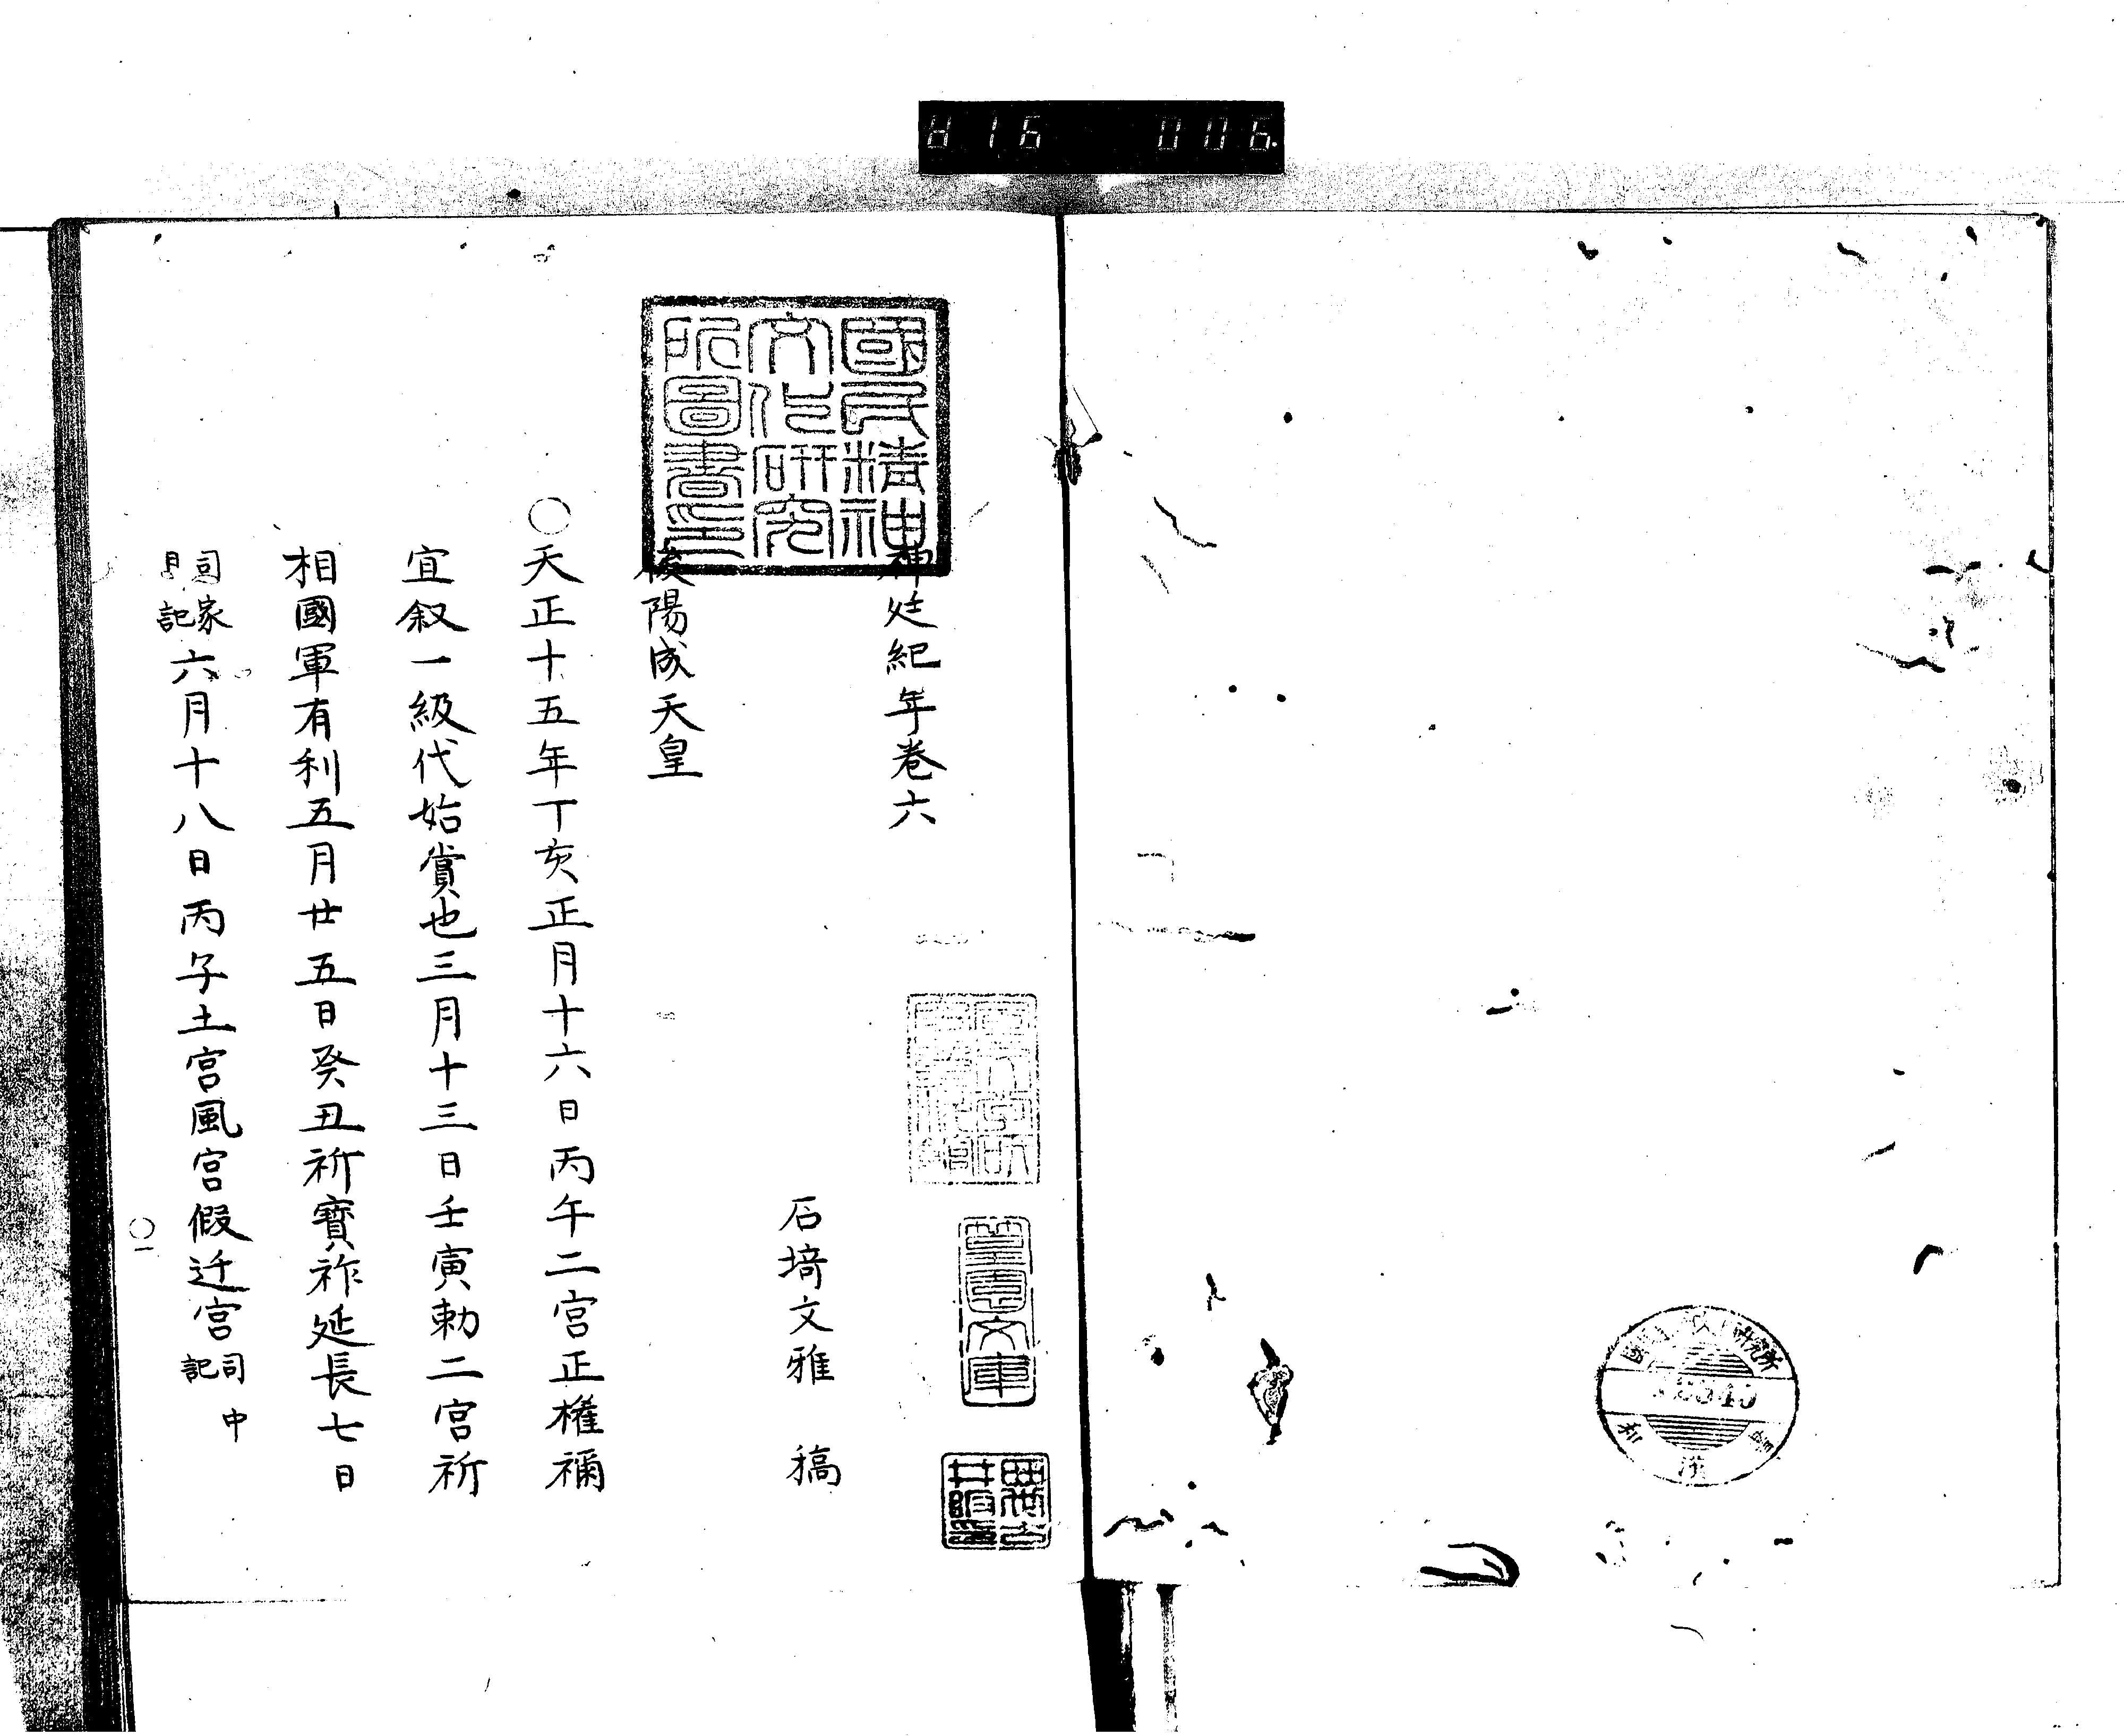 国民精神
文化研究
所圖書印
神廷紀年卷六
石埼文雅 稿
後陽成天皇
○天正十五年丁亥正月十六日丙午二宮正權禰
宜叙一級代始賞也三月十三日壬寅勅二宮祈
相國軍有利五月廿五日癸丑祈寶祚延長七日
司家
日記
六月十八日丙子土宮風宮假迁宮
司中
記
〇一
文庫